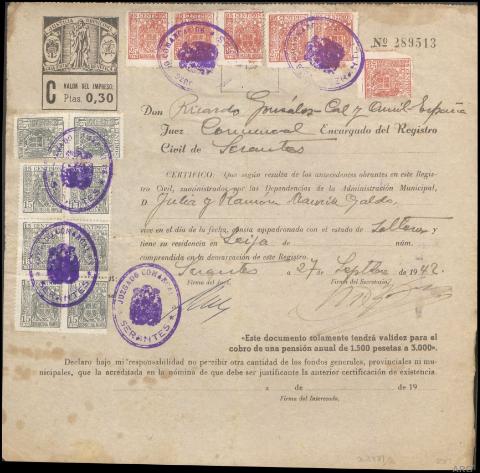 JUSTICIA MUNICIPAL
C VALOR DEL IMPRESO:
Ptas. 0,30
25 CENTIMOS
Nº 289513
Don Ricardo González-Cal y
Juez Comarcal Encargado del Registro
Civil de Serantes
CERTIFICO: Que según resulta de los antecedentes obrantes en este Regis-
tro Civil, suministrados por las Dependencias de la Administración Municipal,
D. Julia y Ramona Galdo,
vive en el día de la fecha, consta empadronado con el estado de Solteras y
tiene su residencia en Leija núm.
comprendida en la demarcación de este Registro.
Serantes a 27 de Septbre de 1942.
Firma del Juez. Firma del Secretario,
JUZGADO COMARCAL
SERANTES
15 CENTIMOS
«Este documento solamente tendrá validez para el
cobro de una pensión anual de 1.500 pesetas a 3.000».
Declaro bajo mi responsabilidad no percibir otra cantidad de los fondos generales, provinciales ni mu-
nicipales, que la acreditada en la nómina de que debe ser justificante la anterior certificación de existencia.
a de de 19
Firma del Interesado,